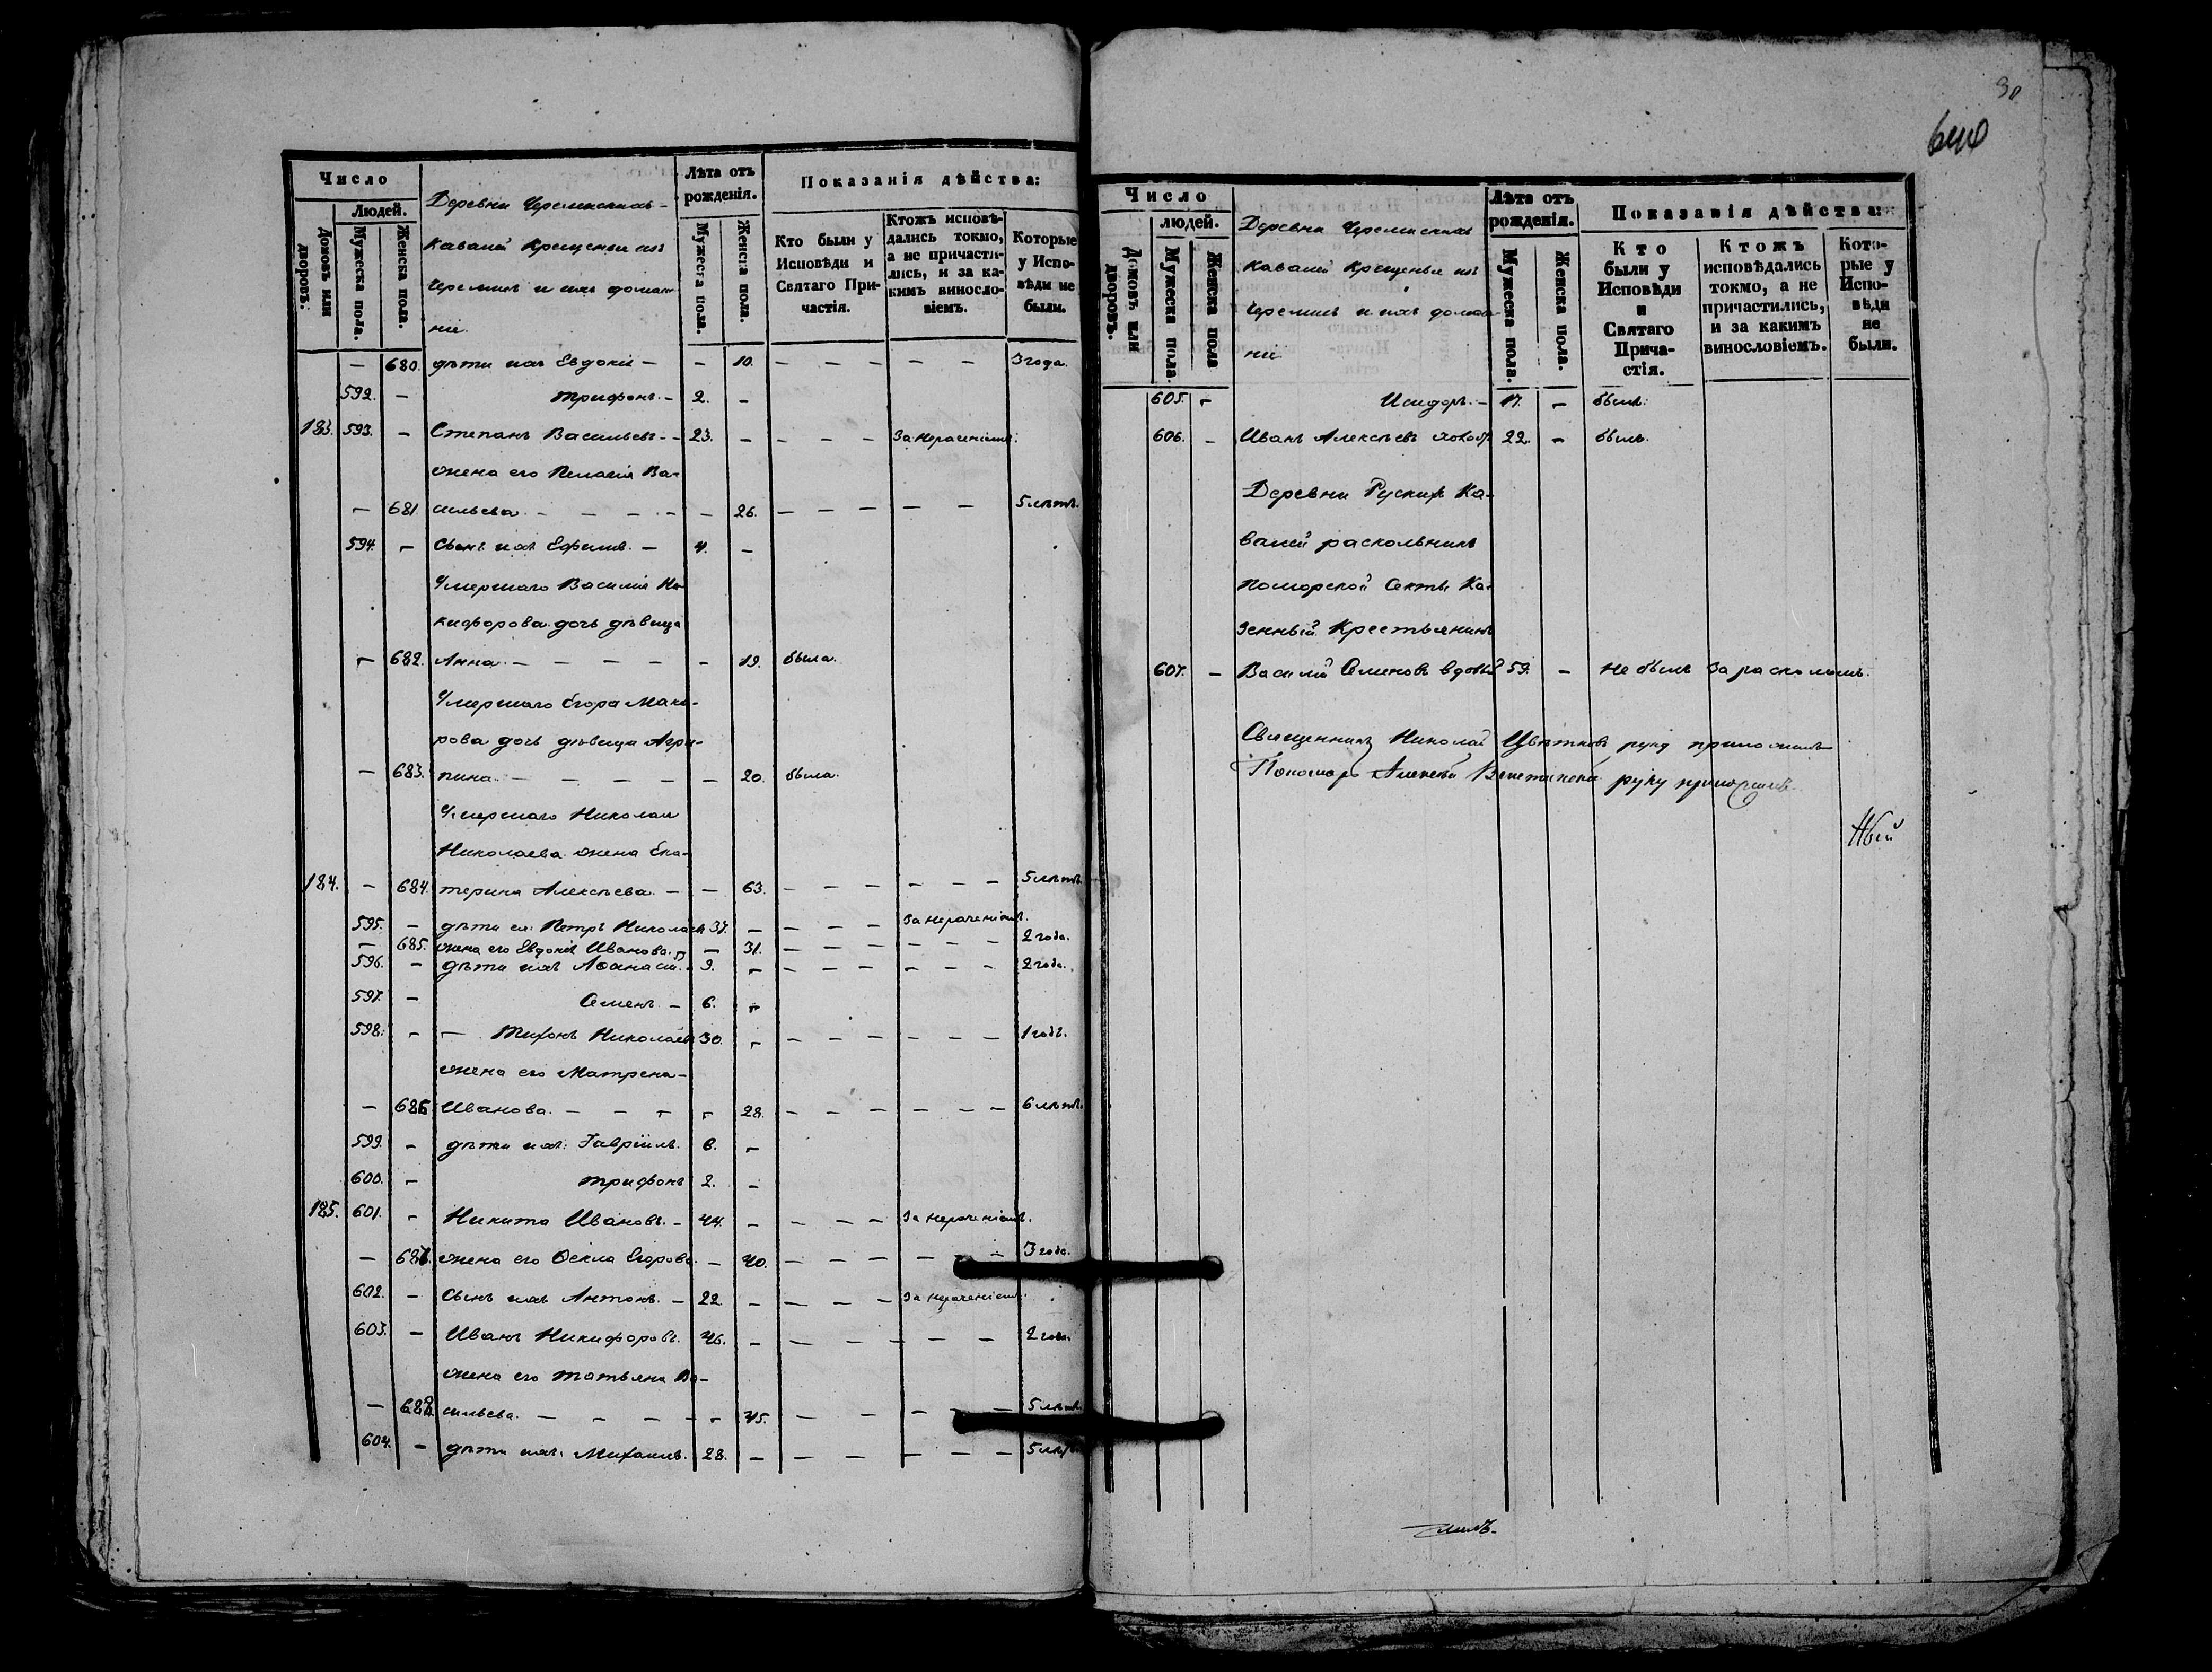 Число
Людей.
Домовъ или дворовъ.
Мужеска пола.
Женска пола.
Деревни Черемисскихъ
Кавалей Крещеные изъ
Черемисъ и ихъ домаш
ніе.
Лѣта отъ рожденія.
Мужеска пола.
Женска пола.
Показанія дѣйства:
Кто были у Исповѣди и Святаго При-
частія.
Ктожъ исповѣ-
дались токмо,
а не причасти-
лись, и за ка-
кимъ винosло-
віемъ.
Которые
у Испо-
вѣди не
были.
— 680. дѣти ихъ Евдокія — — 10. — — — — — 3 года.
592. — Трифонъ. — 2. —
183. 593. — Степанъ Васильевъ - - 23. — — — — За нераченіемъ.
жена его Пелагія Ва-
— 681 сильева — — — — — 26. — — — — — 5 лѣтъ.
594. — Сынъ ихъ Ефимъ. — 4. —
Умершаго Василія Ни-
кифорова дочь дѣвица
— 682. Анна. — — — — — 19. была.
Умершаго Егора Мака-
рова дочь дѣвица Агри-
— 683. пина. — — — — — 20. была.
Умершаго Николая
Николаева жена Ека-
184. — 684. терина Алексѣева. — — 63. — — — — — — 5 лѣтъ.
595. — дѣти ея: Петръ Николаевъ 37. — — — — За нераченіемъ.
— 685. жена его Евдокія Иванова. — 31. — — — — — — 2 года.
596. — дѣти ихъ Афанасій. 9. — — — — — — — 2 года.
597. — Семенъ. — 6. —
598. — — Тихонъ Николаевъ 30. — — — — — — — 1 годъ.
жена его Матрена —
— 686 Иванова. — — — — 28. — — — — — — 6 лѣтъ.
599. — дѣти ихъ: Гавріилъ. 6. —
600. — Трифонъ 2. —
185. 601. — Никита Ивановъ. — 44. — — — — За нераченіемъ.
— 687. жена его Фекла Егорова. — 40. — — — — — — 3 года.
602. — Сынъ ихъ Антонъ. — 22 — — — — За нераченіемъ.
603. — Иванъ Никифоровъ. 46. — — — — — — 2 года.
жена его Татьяна Ва-
— 688 сильева. — — — — — 45. — — — — 5 лѣтъ.
604. — дѣти ихъ: Михаилъ. 28. — — — — — — 5 лѣтъ.
30
640
Число
людей.
Домовъ или дворовъ.
Мужеска пола
Женска пола
Деревни Черемисскихъ
Кавалей Крещеные изъ
Черемисъ и ихъ домаш
ніе
Лѣта отъ рожденія.
Мужеска пола.
Женска пола.
Показанія дѣйства:
Кто
были у
Исповѣди
и
Святаго
Прича-
стія.
Ктожъ
исповѣдались
токмо, а не
причастились,
и за какимъ
винословіемъ.
Кото-
рые у
Испо-
вѣди
не
были.
605. — Исидоръ. — 17. — былъ.
606. — Иванъ Алексѣевъ 22. — былъ.
Деревни Рускихъ Ка-
валей раскольникъ
Поморской Секты Ка-
зенный Крестьянинъ
607. — Василій Семеновъ вдовый 59. — Не былъ За расколомъ.
Священникъ Николай Цвѣтковъ руку приложилъ
Пономарь Алексѣй руку приложилъ.